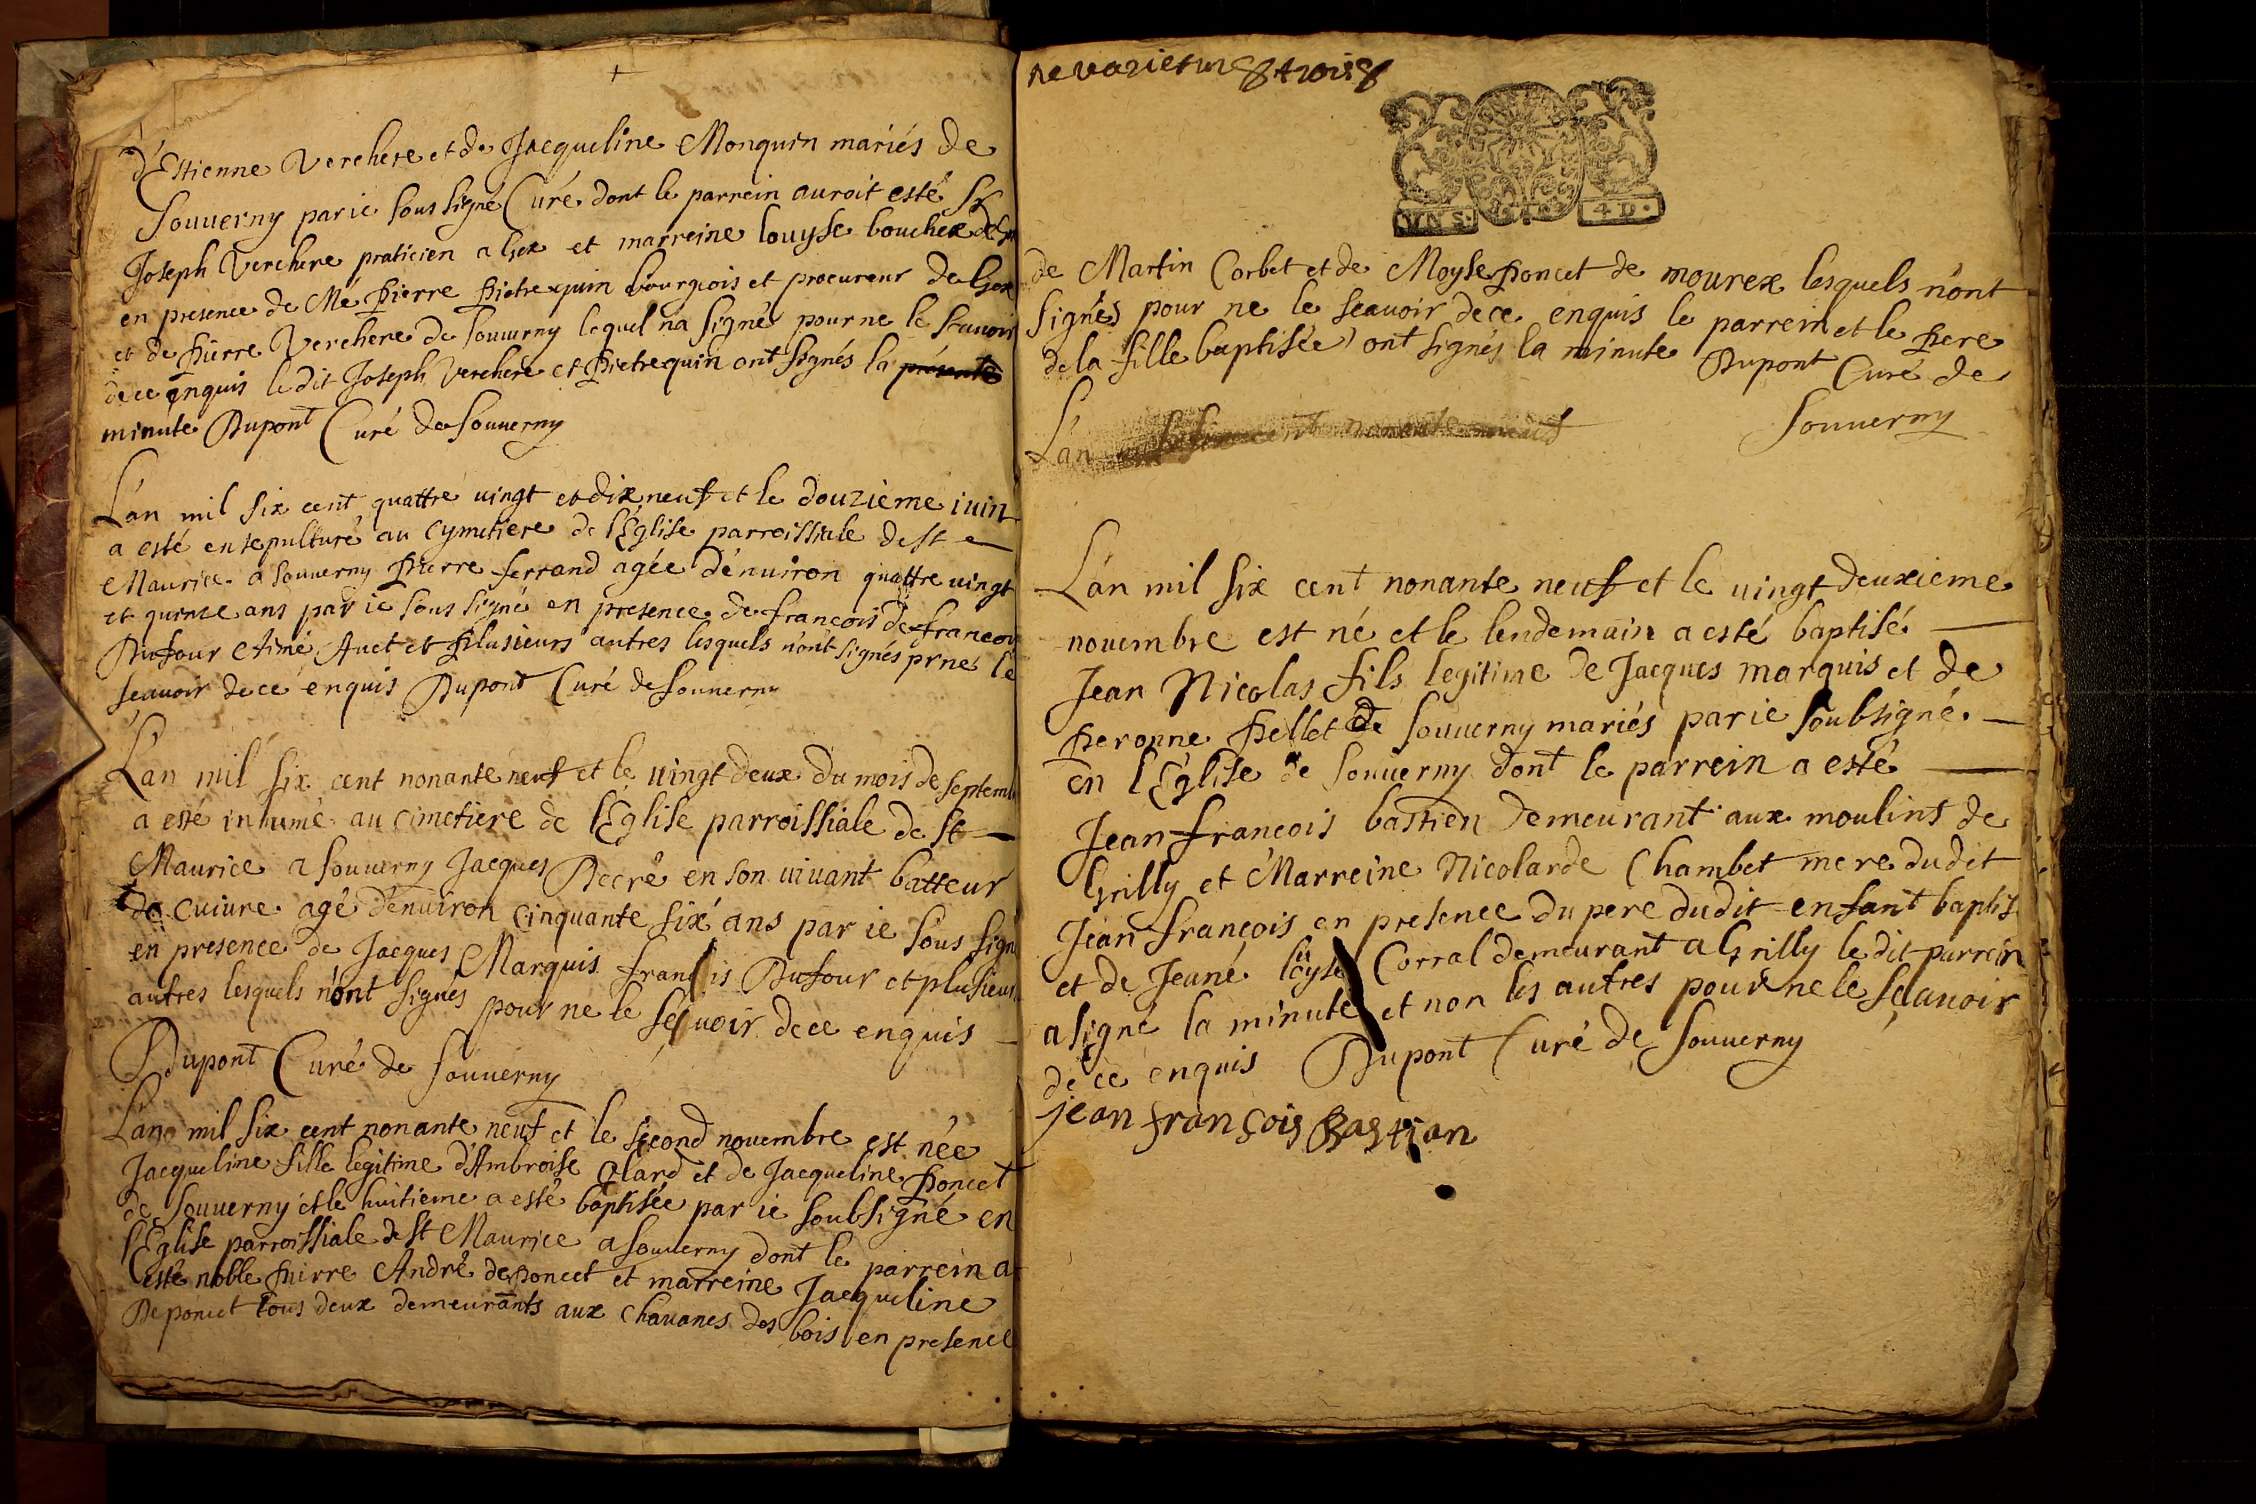 d'Estienne Verchere et de Jacqueline Monquin mariés de
Souverny par ie sous signé Curé dont le parrein auroit esté Sr
Joseph Verchere praticien a Gex et marreine louyse bouchex de Gex
en presence de Me pierre pietrequin bourgeois et procureur de Gex
et de pierre Verchere de Souverny lequel na signé pour ne le scavoir
de ce enquis le dit Joseph Verchere et pietrequin ont signés la presente
minute Dupont Curé de Souverny
L'an mil six cent quattre vingt et dix neuf et le douzieme iuin
a esté ensepulturé au cymetiere de l'Eglise parroissiale de St
Maurice a Souverny pierre ferrand agée d'environ quattre vingt
et quinze ans par ie sous signé en presence de francois de francois
Dufour Aimé Auet et plusieurs autres lesquels n'ont signés pr ne le
scavoir de ce enquis Dupont Curé de Souverny
L'an mil six cent nonante neuf et le vingt deux du mois de septemb
a esté inhumé au cimetiere de l'Eglise parroissiale de St
Maurice a Souverny Jacques Decré en son vivant batteur
de cuivre agé d'environ cinquante six ans par ie sous signé
en presence de Jacques Marquis francois Dufour et plusieurs
autres lesquels n'ont signés pour ne le sçavoir de ce enquis
Dupont Curé de Souverny
L'an mil six cent nonante neuf et le second novembre est née
Jacqueline fille legitime d'Ambroise Olard et de Jacqueline poncet
de Souverny et le huitieme a esté baptisée par ie soubsigné en
l'Eglise parroissiale de St Maurice a Souverny dont le parrein a
esté noble pierre André deponcet et marreine Jacqueline
Deponcet tous deux demeurants aux chavanes des bois en presence
ne varietur trois
UN S. 4 D.
de Martin Corbet et de Moyse poncet de mourex lesquels n'ont
signés pour ne le scavoir de ce enquis le parrein et le pere
de la fille baptisée ont signés la minute Dupont Curé de
Souverny
L'an mil six cent nonante neuf
L'an mil six cent nonante neuf et le vingt deuxieme
novembre est né et le lendemain a esté baptisé
Jean Nicolas fils legitime de Jacques marquis et de
peronne pellet de Souverny mariés par ie soubsigné
en l'Eglise de Souverny dont le parrein a esté
Jean francois bastien demeurant aux moulins de
Grilly et Marreine Nicolarde Chambet mere dudit
Jean françois en presence du pere dudit enfant baptisé
et de Jeane loüyse Corral demeurant a Grilly le dit parrein
a signé la minute et non les autres pour ne le sçavoir
de ce enquis Dupont Curé de Souverny
jean françois Bastian